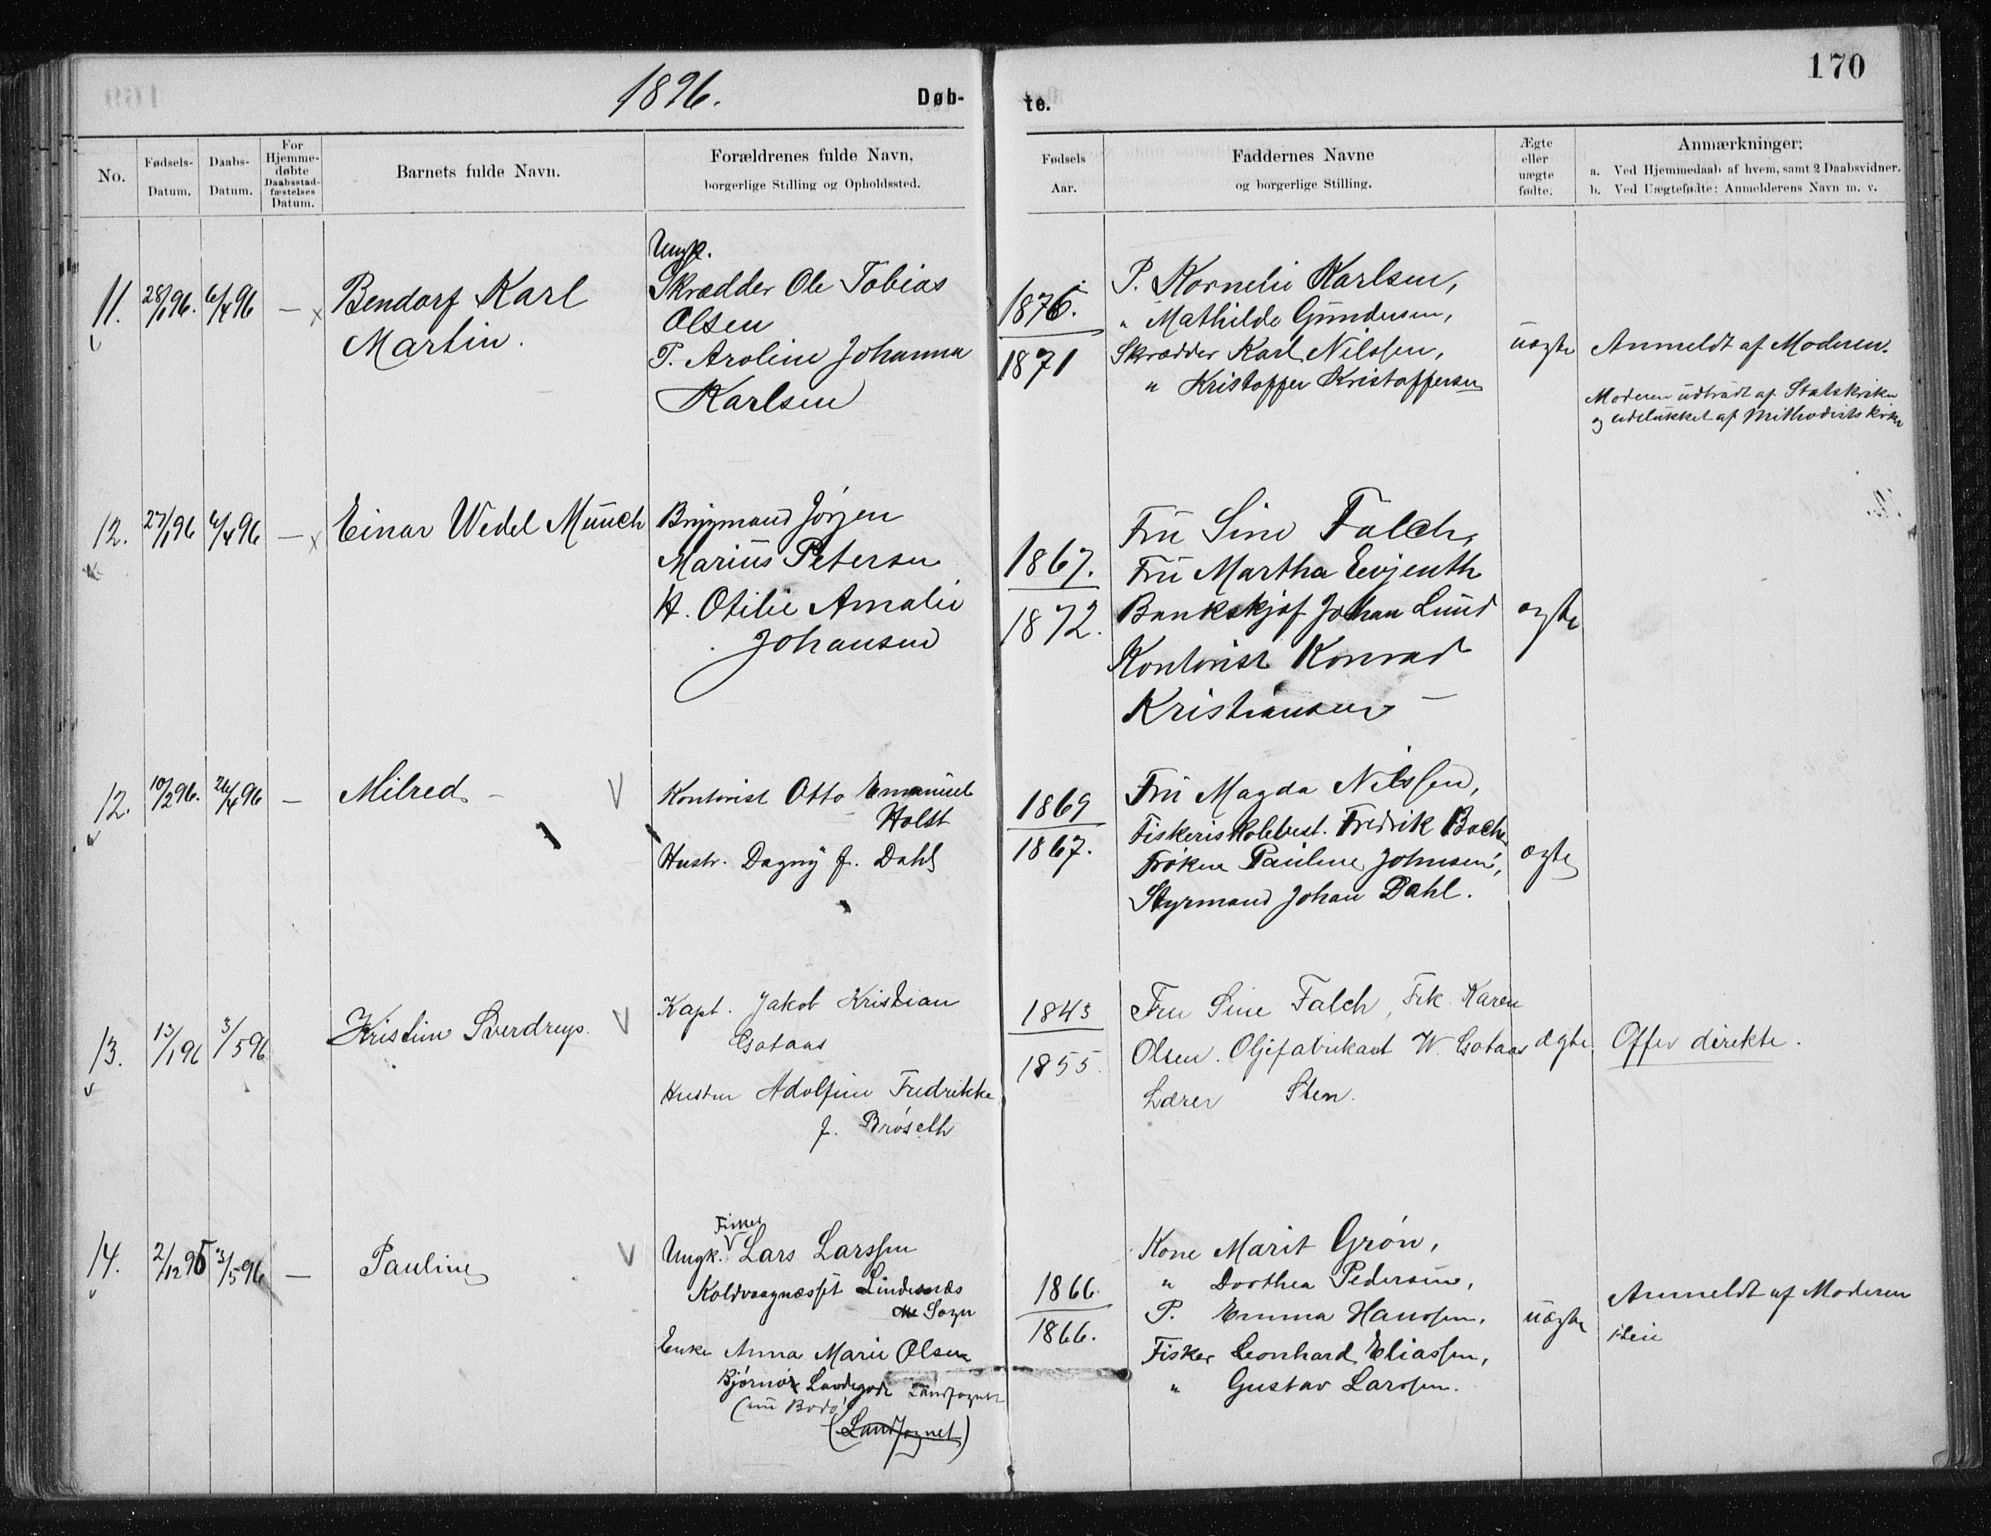 170
1896.
Døb-
te.
No.
Fødsels-
Datum.
Daabs-
Datum.
For
Hjemme-
døbte
Daabsstad-
fæstelses
Datum.
Barnets fulde Navn.
Forældrenes fulde Navn,
borgerlige Stilling og Opholdssted.
Fødsels
Aar.
Faddernes Navne
og borgerlige Stilling.
Ægte
eller
uægte
fødte.
Anmærkninger:
a. Ved Hjemmedaab af hvem, samt 2 Daabsvidner.
b. Ved Uægtefødte: Anmelderens Navn m. v.
11.
28/1 96.
6/4 96
—
Bendorf Karl
Martin.
Ungk.
Skrædder Ole Tobias
Olsen
P. Aroline Johanna
Karlsen
1876.
1871
P. Kornelie Karlsen,
" Mathilde Gundersen,
Skrædder Karl Nilssen,
" Kristoffer Kristoffersen
uægte
Anmeldt af Moderen.
Moderen udtraadt af Statskirken
og udelukket af Methodistkirke
12.
27/1 96
6/4 96
—
Einar Wedel Münch
Brygmand Jörgen
Marius Petersen
H. Otilie Amalie
Johansen
1867.
1872.
Fru Sine Falch,
Fru Martha Evjenth
Bankskjef Johan Lund
Kontorist Konrad
Kristiansen —
ægte
12.
10/2 96.
26/4 96
—
Milred —
V
Kontorist Otto Emanuel
Holst
Hustr. Dagny f. Dahl
1869
1867.
Fru Magda Nilssen,
Fiskeriskolebest. Fredrik Bach
Frøken Pauline Johnsen,
Styrmand Johan Dahl.
ægte
13.
13/1 96
3/5 96
Kristine Sverdrup.
V
Kapt. Jakob Kristian
Gotaas
Hustru Adolfine Fredrikke
f. Brøseth
1843
1855.
Fru Sine Falch, Frk. Karen
Olsen. Oljefabrikant W. Gotaas
Lærer Sten.
ægte
Offer direkte.
14.
2/12 95
3/5 96
—
Pauline
V
Fisker
Ungk. Lars Larssen
Koldvaagnæsset Lindesnæs
Sogn
Enke Anna Marie Olsen
Bjørnør Landegode Landsognet
(nu Bodø
(Landsognet)
1866.
1866.
Kone Marit Grøn,
" Dorthea Pedersen,
P. Emma Hanssen,
Fisker Leonhard Eliassen,
" Gustav Larssen.
uægte
Anmeldt af Moderen